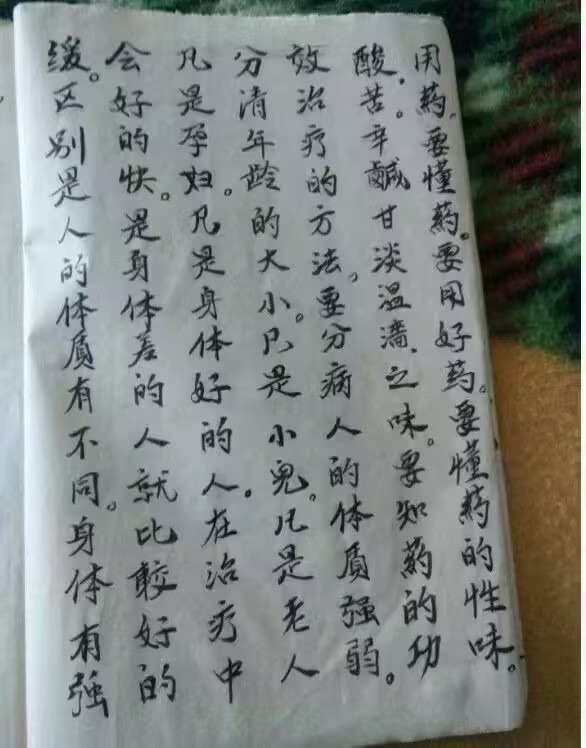 用药,要懂药。要用好药。要懂药的性味。
酸,苦。辛鹹甘淡温濇、之味。要知药的功
效治疗的方法,要分病人的体质强弱。
分清年龄的大小。凡是小児。凡是老人
凡是孕妇。凡是身体好的人。在治疗中
会好的快。是身体差的人就比較好的
缓。区别是人的体质有不同。身体有强